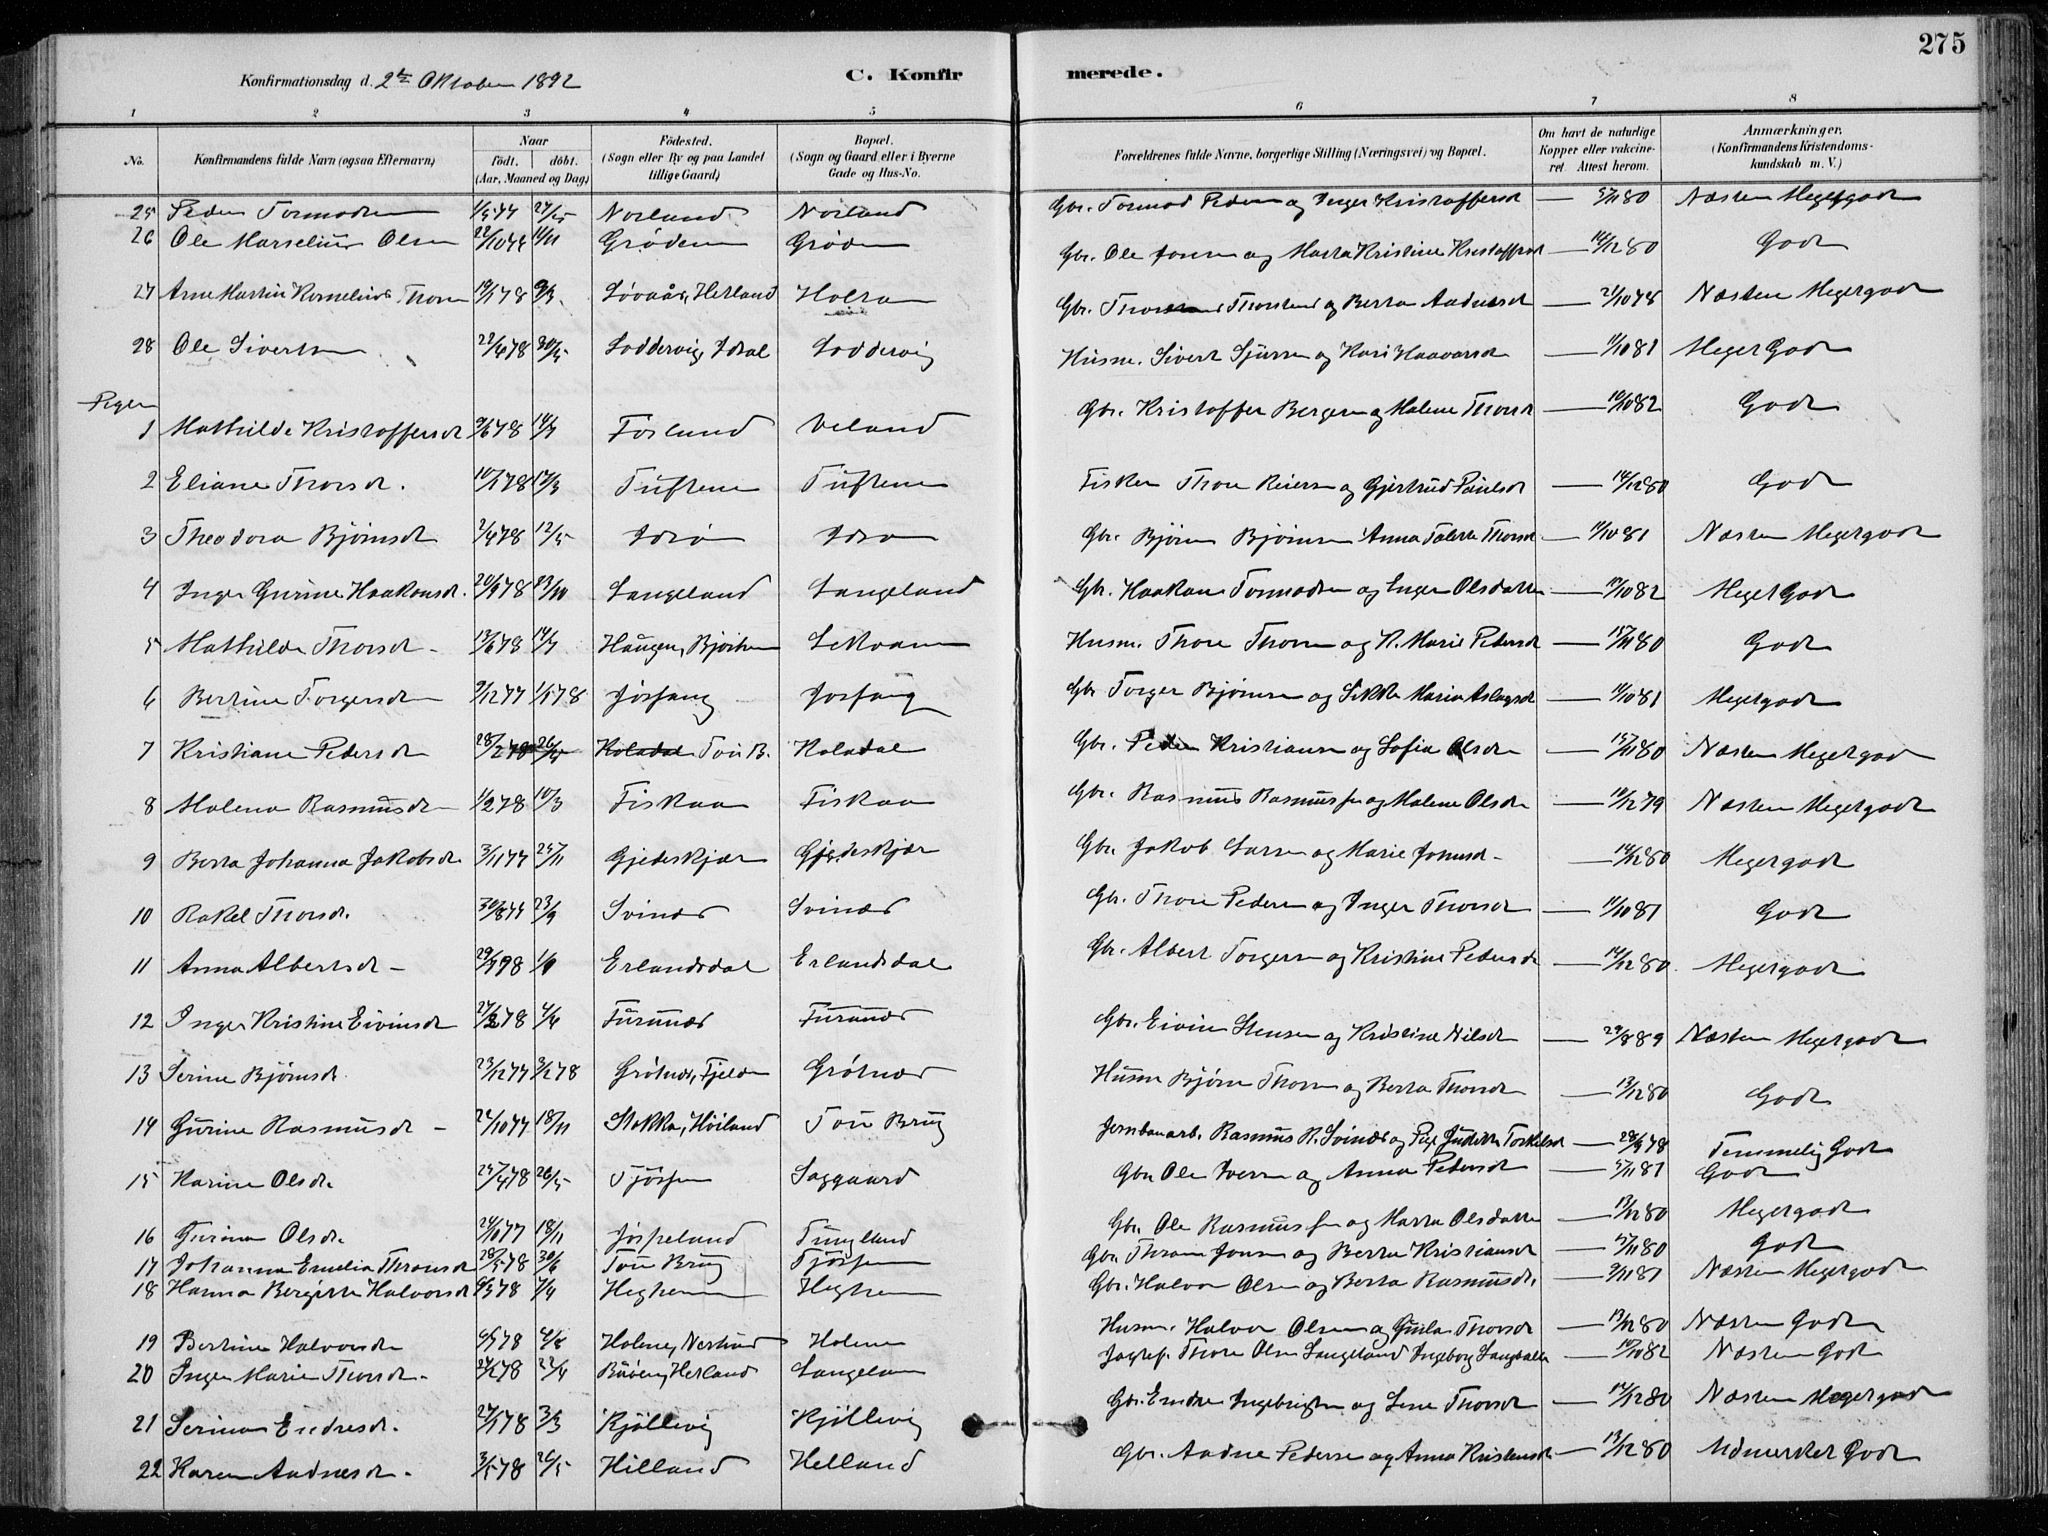 275
Konfirmationsdag d. 2de Oktober 1892 C. Konfirmerede.
1 2 3 4 5 6 7 8
No. Konfirmandens fulde Navn (ogsaa Efternavn) Naar födt. döbt. (Aar, Maaned og Dag.) Födested. (Sogn eller By og paa Landet tillige Gaard.) Bopæl. (Sogn og Gaard eller i Byerne Gade og Hus-No. Forældrenes fulde Navne, borgerlige Stilling (Næringsvei) og Bopæl. Om havt de naturlige Kopper eller vakcineret. Attest herom. Anmærkninger. (Konfirmandens Kristendomskundskab m. V.)
25 Peder Tormodsen Norland Norland Gbr. Tormod Pedersen og Inger Kristoffersd — 5/11 80 Næsten Megetgodt
26 Ole Marselius Olsen 22/10 77 11/11 Grøden Grøden Gbr. Ole Jonsen og Marta Kristine Kristoffersd — 14/12 80 Godt
27 Arne Martin Kornelius Thorsen 19/1 78 9/3 Løvaas, Hetland Holta Gbr. Thorstensen og Berta Aadnesd — 21/10 78 Næsten Megetgodt
28 Ole Sivertsen 22/4 78 30/5 Loddervig, Idsal Loddervig Husm. Sivert Sjursen og Kari Haavarsd — 11/10 81 Meget Godt
Piger
1 Mathilde Kristoffersd 9/6 78 14/7 Fosland Veland Gbr. Kristoffer Bergesen og Malene Thorsd — 10/10 82 Godt
2 Eliane Thorsd. 10/1 78 17/3 Tuftene Tuftene Fisker Thore Reiersen og Gjertrud Paulsd — 14/12 80 Godt
3 Theodora Bjørnsd 2/4 78 12/5 Idsø Idsø Gbr. Bjørn Bjørnsen Anna Tolette Thorsd — 11/10 81 Næsten Megetgodt
4 Inger Gurine Haakonsd. 20/9 78 23/10 Langeland Langeland Gbr. Haakon Tormodsen og Inger Olsdatter — 10/10 82 Meget Godt
5 Mathilde Thorsd — 13/6 78 14/7 Haugen, Bjørheim Husm. Thore Thorsen og K. Marie Pedersd — 15/11 80 Godt
6 Bertine Torgersd 9/12 77 1/1 78 Jøsang Josang Gbr Torger Bjørnsen og Sikke Maria Aslagsd — 11/10 81 Megetgodt
7 Kristiane Pedersd 28/2 78 26/5 Koladal Tou B. Koladal Gbr. Peder Kristiansen og Sofia Olsdr — 15/11 80 Næsten Megetgodt
8 Malena Rasmusdr 1/2 78 10/3 Fiskaa Fiskaa Gbr. Rasmus Rasmussen og Malene Olsdr — 11/12 79 Næsten Megetgodt
9 Berta Johanna Jakobsdr 3/11 77 25/11 Gjedeskjær Gjedeskjær Gbr. Jakob Larsen og Marie Jonasd — 14/12 80 Megetgodt
10 Rakel Thorsdr. 30/8 77 23/9 Svinæs Svinæs Gbr. Thore Pedersen og Inger Thorsd — 11/10 81 Godt
11 Anna Albertsdr — 29/7 78 1/9 Erlandsdal Erlandsdal Gbr. Albert Torgersen og Kristine Pedersdr — 14/12 80 Megetgodt
12 Inger Kristine Eivinsdr 27/2 78 4/4 Furunæs Furunæs Gbr. Eivin Stensen og Kristine Nilsdr — 29/8 89 Næsten Megetgodt
13 Serine Bjørnsdr 23/12 77 3/2 78 Grøtnæs, Fjelde Grøtnæs Husm Bjørn Thorsen og Berta Thorsdr — 13/12 80 Godt
14 Gurine Rasmusdr — 22/10 77 18/11 Stokka, Høiland Tou Brug Jernbanearb. Rasmus R. Svinæs og Pige Judithe Torkelsdr — 28/9 78 Temmelig Godt
15 Karine Olsdr. 27/4 78 26/5 Tjøstem Saggaard Gbr Ole Iversen og Anna Pedersdr — 5/11 81 Godt
16 Gurina Olsdr. 18/11 Jøspeland Tungland Gbr. Ole Rasmussen og Marta Olsdatter — 13/12 80 Megetgodt
17 Johanna Emelia Thomasdr 28/5 78 30/6 Tou Brug Tjøstem Gbr. Thomas Jonsen og Berta Kristiansdr — 5/11 80 Godt
18 Hanna Bergitte Halvorsdr 6/3 78 7/4 Heghem Heghem Gbr. Halvor Olsen og Berta Rasmusdr. — 9/11 81 Næsten Megetgodt
19 Bertine Halvorsdr Holene, Nerstrand Holene Husm. Halvor Olsen og Gunla Thorsdr — 13/12 80 Næsten Godt
20 Inger Marie Thorsdr. Hetland Langeland Thore Olsen Langeland Ingeborg — 10/10 82 Næsten Godt
21 Serina Endresdr. 27/1 78 3/3 Kjøllevig Kjøllevig Gbr. Endre Ingebrigtsen og Lene Thorsdr — 14/12 80 Næsten Megetgodt
22 Karen Aadnesdr. 3/5 78 26/5 Hilland Helland Gbr. Aadne Pedersen og Anna Kristensdr — 13/12 80 Udmerket Godt